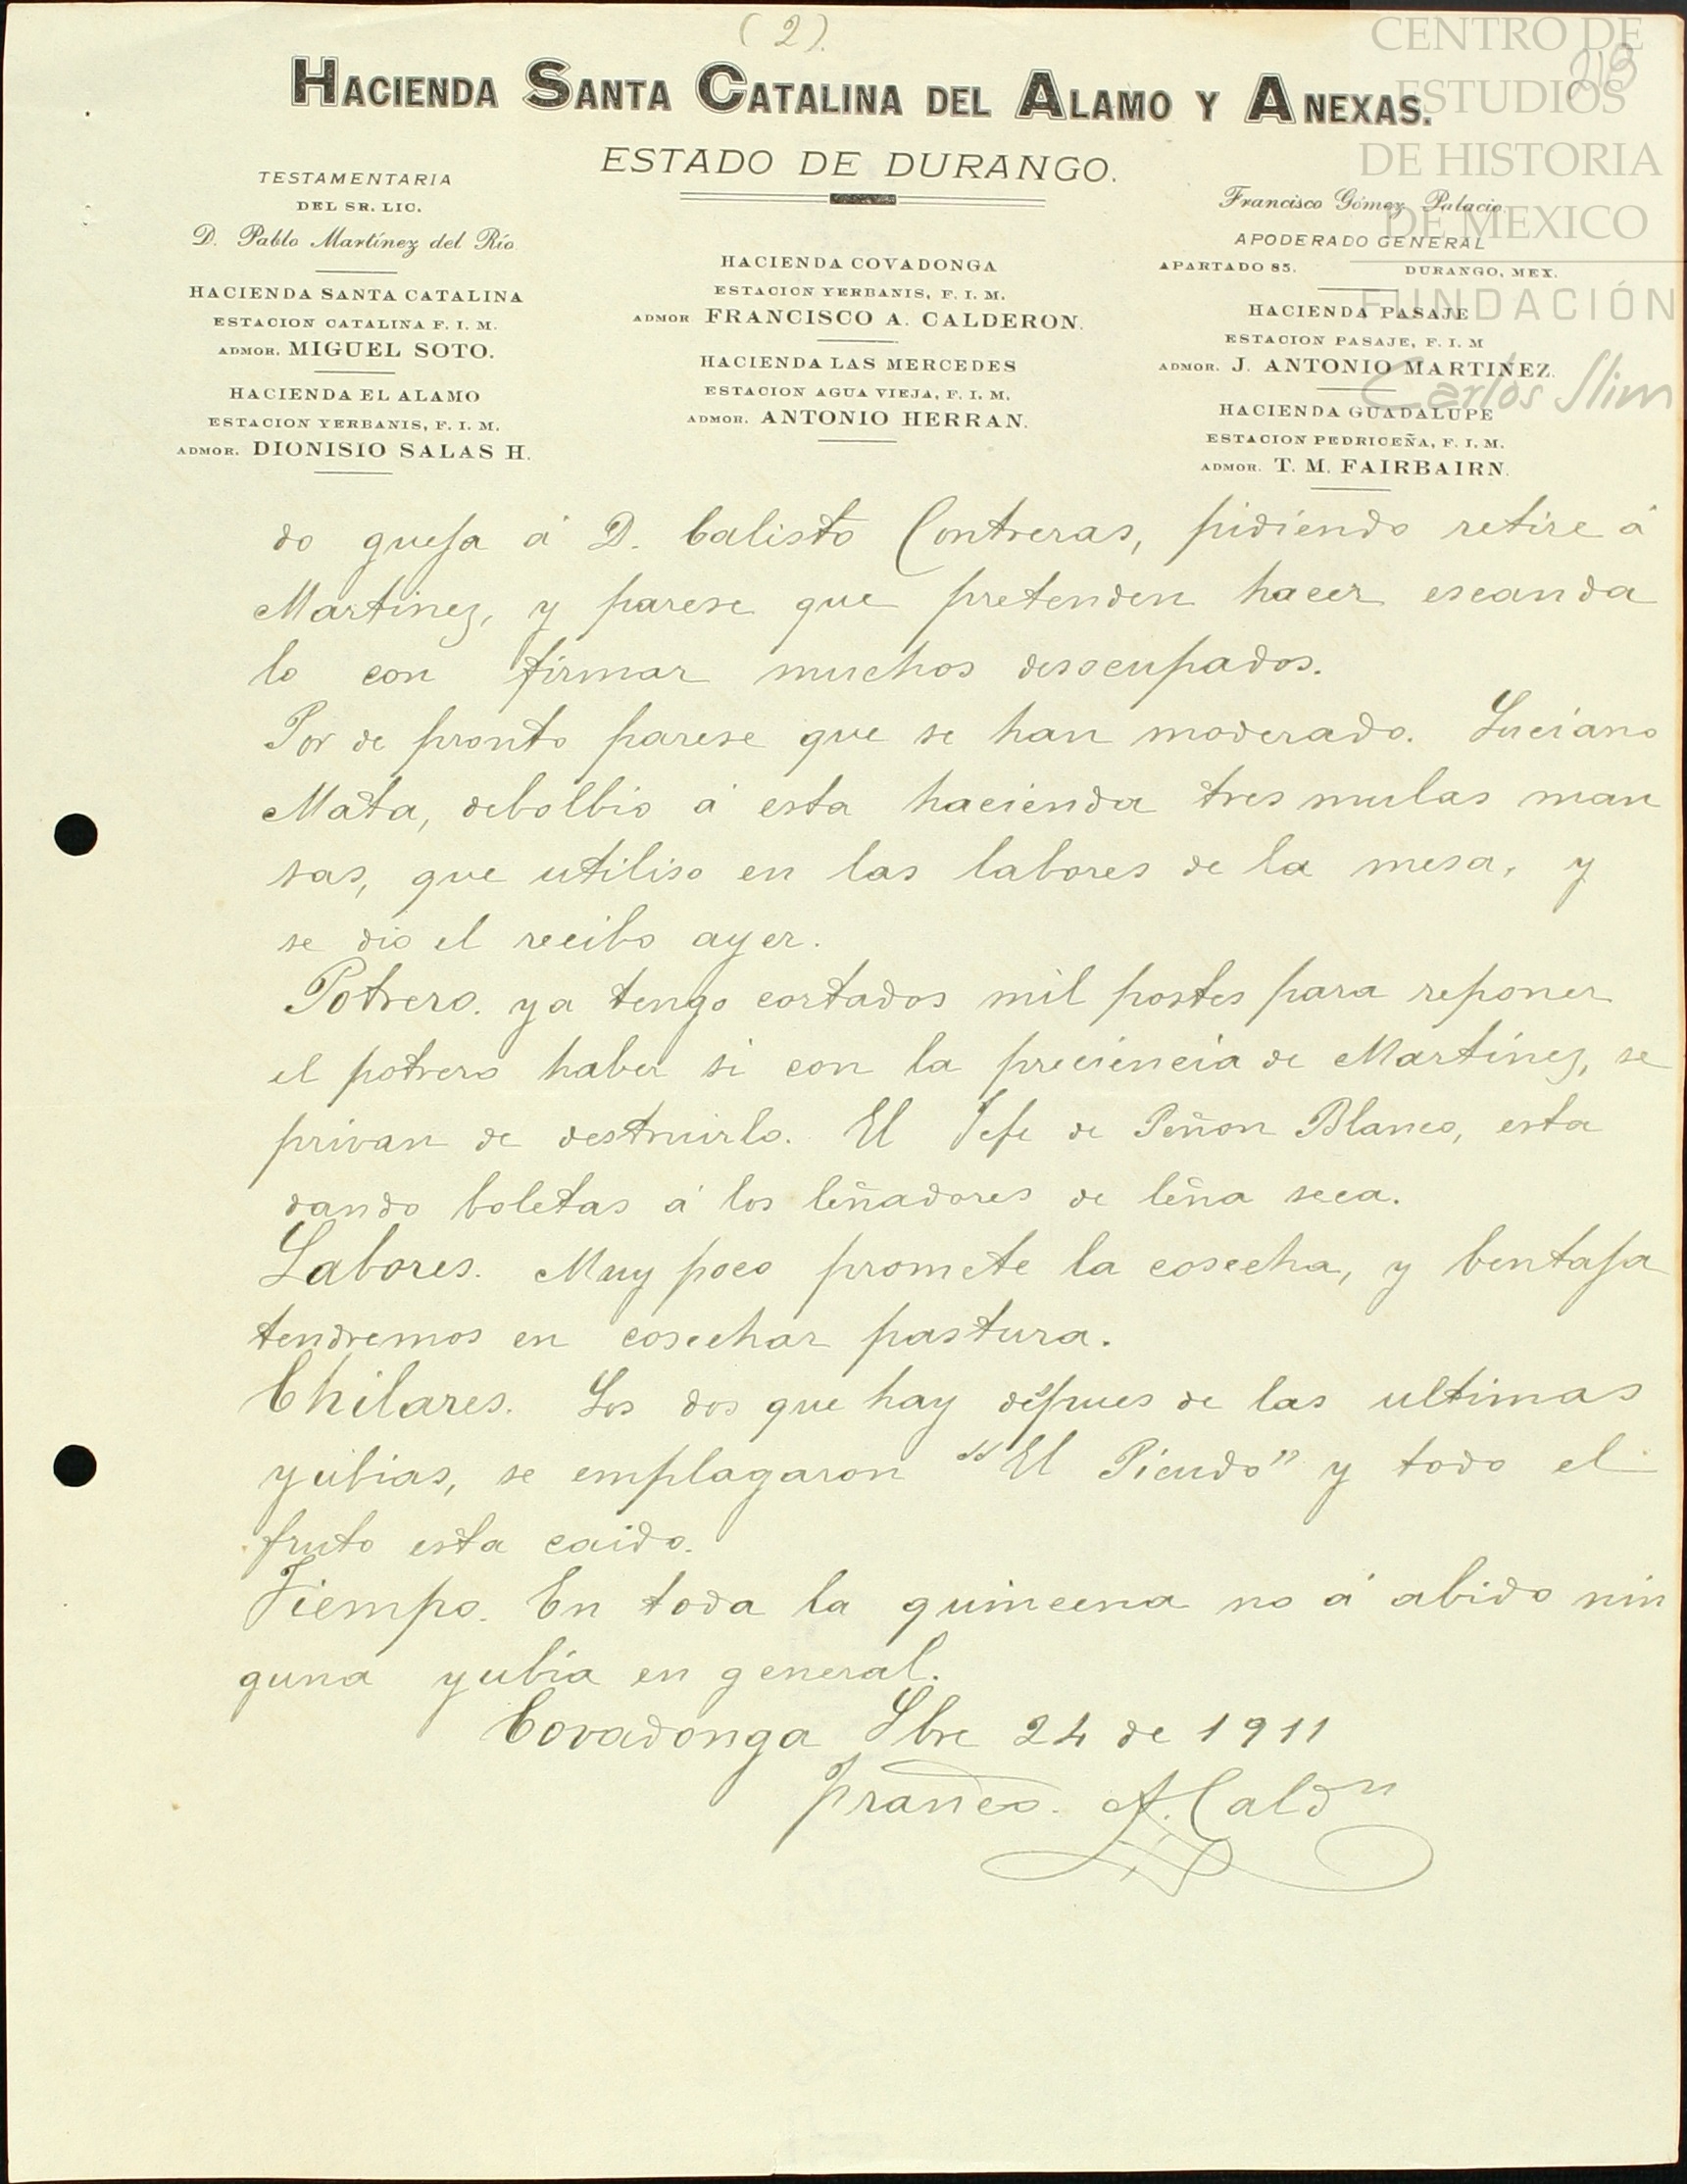 (2).
213
HACIENDA SANTA CATALINA DEL ALAMO Y ANEXAS.
ESTADO DE DURANGO.
TESTAMENTARIA
DEL SR. LIC.
D. Pablo Martínez del Río
HACIENDA SANTA CATALINA
ESTACION CATALINA F. I. M.
ADMOR. MIGUEL SOTO.
HACIENDA EL ALAMO
ESTACION YERBANIS, F. I. M.
ADMOR. DIONISIO SALAS H.
HACIENDA COVADONGA
ESTACION YERBANIS, F. I. M.
ADMOR FRANCISCO A. CALDERON.
HACIENDA LAS MERCEDES
ESTACION AGUA VIEJA, F. I. M.
ADMOR. ANTONIO HERRAN.
Francisco Gómez Palacio
APODERADO GENERAL
APARTADO 85. DURANGO, MEX.
HACIENDA PASAJE
ESTACION PASAJE, F. I. M
ADMOR. J. ANTONIO MARTINEZ.
HACIENDA GUADALUPE
ESTACION PEDRICEÑA, F. I. M.
ADMOR. T. M. FAIRBAIRN.
CENTRO DE
ESTUDIOS
DE HISTORIA
DE MEXICO
FUNDACIÓN
Carlos Slim
do queja á D. Calisto Contreras, pidiendo retire á
Martinez, y parese que pretenden hacer escanda
lo con firmar muchos desocupados.
Por de pronto parese que se han moderado. Luciano
Mata, debolbio á esta hacienda tres mulas man
sas, que utiliso en las labores de la mesa, y
se dio el recibo ayer.
Potrero. ya tengo cortados mil postes para reponer
el potrero haber si con la preciencia de Martinez, se
privan de destruirlo. El Jefe de Peñon Blanco, esta
dando boletas á los leñadores de leña seca.
Labores. Muy poco promete la cosecha, y bentaja
tendremos en cosechar pastura.
Chilares. Los dos que hay despues de las ultimas
yubias, se emplagaron "El Picudo" y todo el
fruto esta caido.
Tiempo. En toda la quincena no á abido nin
guna yubia en general.
Covadonga Sbre 24 de 1911
Franco. A. Caldn